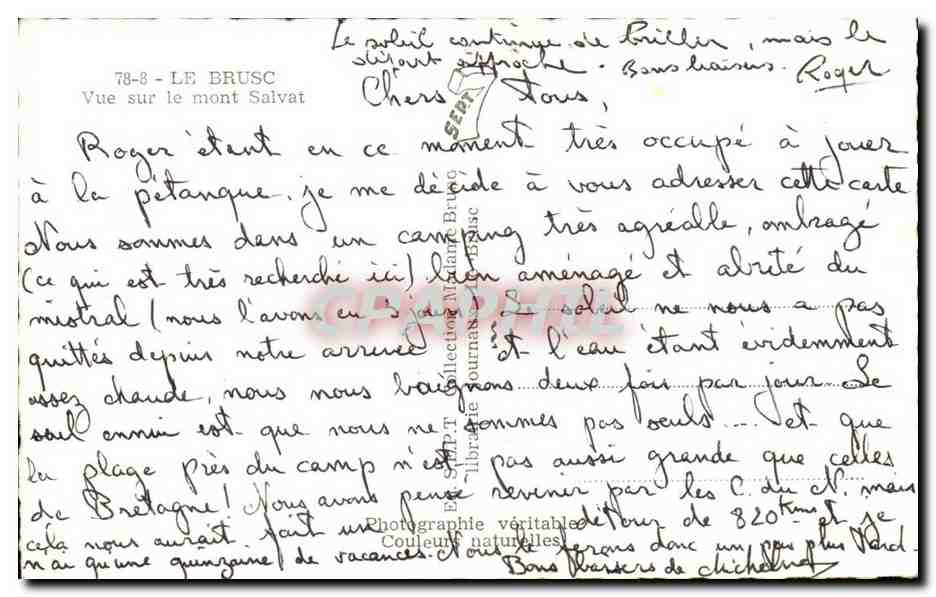 Le soleil continue de briller, mais le
départ approche. Bons baisers. Roger
78-8 - LE BRUSC
Vue sur le mont Salvat
SEPT
Chers Tous,
Roger étant en ce moment très occupé à jouer
à la pétanque, je me décide à vous adresser cette carte
Nous sommes dans un camping très agréable, ombragé
(ce qui est très recherché ici) bien aménagé et abrité du
mistral (nous l'avons eu 3 jours) Le soleil ne nous a pas
quittés depuis notre arrivée et l'eau étant évidemment
assez chaude, nous nous baignons deux fois par jour Le
seul ennui est que nous ne sommes pas seuls .... et que
la plage près du camp n'est pas aussi grande que celles
de Bretagne! Nous avons pensé revenir par les C. du N. mais
cela nous aurait fait un détour de 820 Kms et je
n'ai qu'une quinzaine de vacances. Nous le ferons donc un peu plus tard
Bons baisers de
Collection Madame Bruno
librairie journaux Le Brusc
Photographie véritable
Couleurs naturelles
CPAPHIL